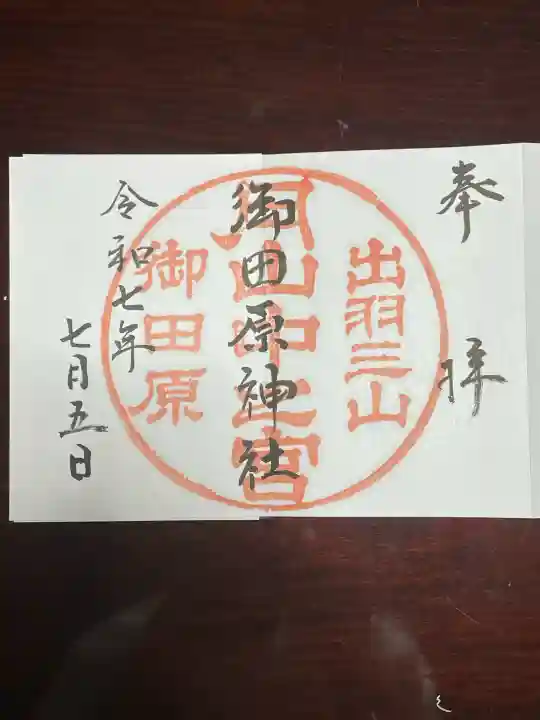 奉拝
出羽三山
月山中之宮
御田原
御田原神社
令和七年
七月五日